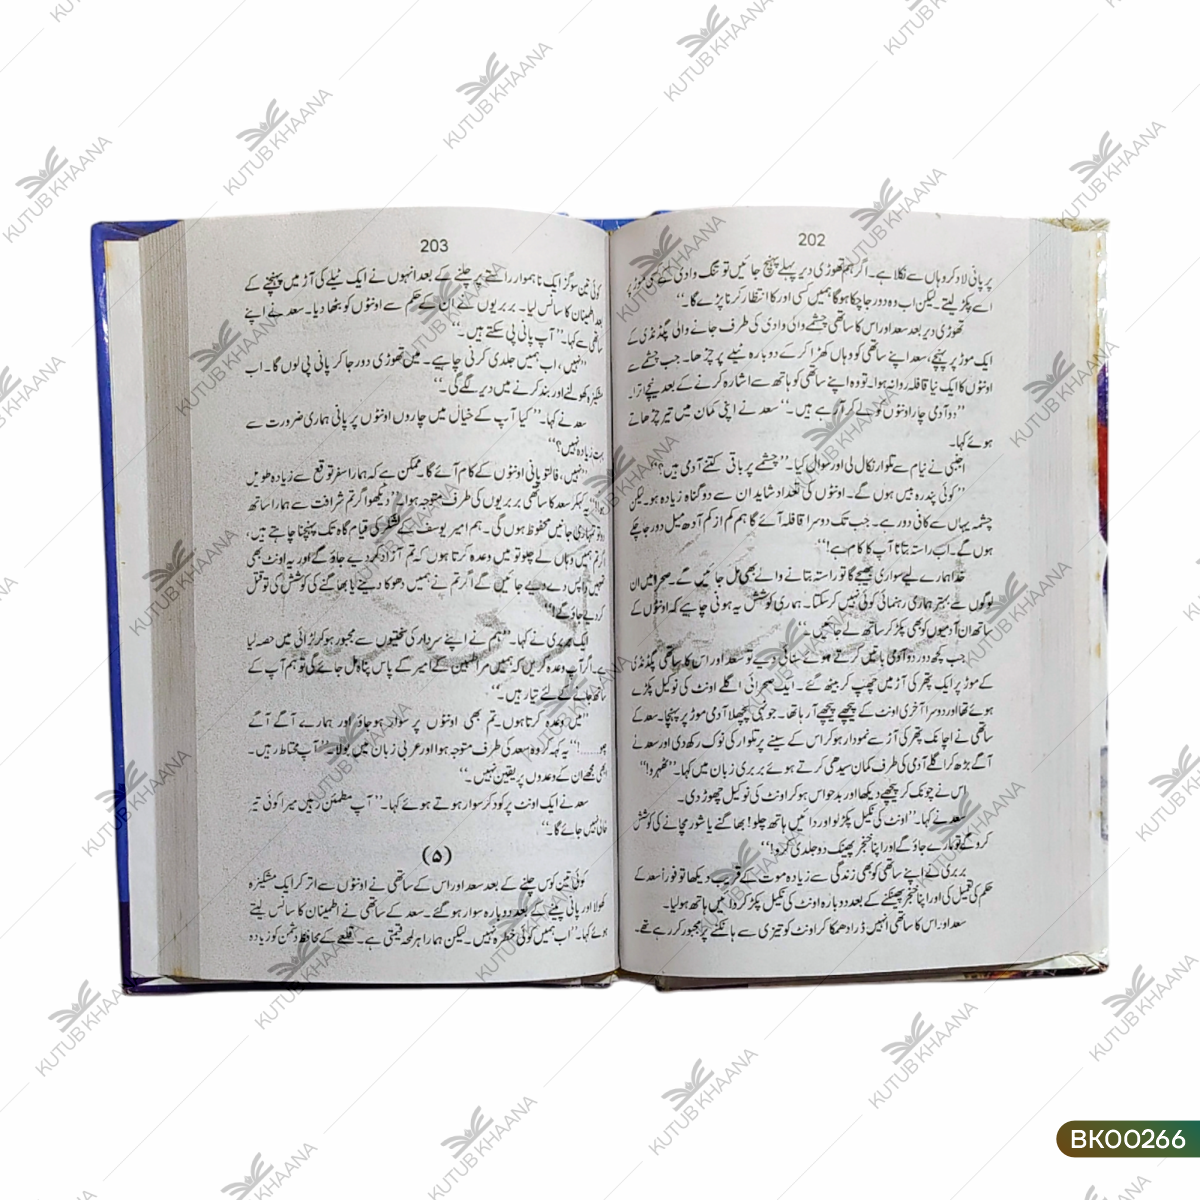 202
پر پانی لاد کر وہاں سے نکلا ہے۔ اگر ہم تھوڑی دیر پہلے پہنچ جائیں تو تنگ وادی کے کسی موڑ پر
اسے پکڑ لیتے لیکن اب وہ دور جا چکا ہوگا ہمیں کسی اور کا انتظار کرنا پڑے گا۔‘‘
تھوڑی دیر بعد سعد اور اس کا ساتھی چشمے والی وادی کی طرف جانے والی پگڈنڈی کے
ایک موڑ پر پہنچے، سعد اپنے ساتھی کو وہاں کھڑا کر کے دوبارہ ٹیلے پر چڑھا۔ جب چشمے سے
اونٹوں کا ایک نیا قافلہ روانہ ہوا۔ تو وہ اپنے ساتھی کو ہاتھ سے اشارہ کرنے کے بعد نیچے اترا۔
’’دو آدمی چار اونٹوں کو لے کر آ رہے ہیں۔‘‘ سعد نے اپنی کمان میں تیر چڑھاتے
ہوئے کہا۔
اجنبی نے نیام سے تلوار نکال لی اور سوال کیا۔ ’’چشمے پر باقی کتنے آدمی ہیں؟‘‘
’’کوئی پندرہ بیس ہوں گے۔ اونٹوں کی تعداد شاید ان سے دو گناہ زیادہ ہو۔ لیکن
چشمہ یہاں سے کافی دور ہے۔ جب تک دوسرا قافلہ آئے گا ہم کم از کم آدھ میل دور جا چکے
ہوں گے۔ اب راستہ بتانا آپ کا کام ہے!‘‘
خدا ہمارے لیے سواری بھیجے گا تو راستہ بتانے والے بھی مل جائیں گے۔ صحرا میں ان
لوگوں سے بہتر ہماری رہنمائی کوئی نہیں کر سکتا۔ ہماری کوشش یہ ہونی چاہیے کہ اونٹوں کے
ساتھ ان آدمیوں کو بھی پکڑ کر ساتھ لے جائیں۔‘‘
جب کچھ دور دو آدمی باتیں کرتے ہوئے سنائی دیے تو سعد اور اس کا ساتھی پگڈنڈی
کے موڑ پر ایک پتھر کی آڑ میں چھپ کر بیٹھ گئے۔ ایک صحرائی اگلے اونٹ کی نوکیل پکڑے
ہوئے تھا اور دوسرا آخری اونٹ کے پیچھے پیچھے آ رہا تھا۔ جونہی پچھلا آدمی موڑ پر پہنچا۔ سعد کے
ساتھی نے اچانک پتھر کی آڑ سے نمودار ہو کر اس کے سینے پر تلوار کی نوک رکھ دی اور سعد نے
آگے بڑھ کر اگلے آدمی کی طرف کمان سیدھی کرتے ہوئے بربری زبان میں کہا۔ ’’ٹھہرو!‘‘
اس نے چونک کر پیچھے دیکھا اور بدحواس ہو کر اونٹ کی نوکیل چھوڑ دی۔
سعد نے کہا۔ ’’اونٹ کی نکیل پکڑ لو اور دائیں ہاتھ چلو! بھاگنے یا شور مچانے کی کوشش
کرو گے تو مارے جاؤ گے اور اپنا خنجر پھینک دو جلدی کرو!‘‘
بربری نے اپنے ساتھی کو بھی زندگی سے زیادہ موت کے قریب دیکھا تو فوراً سعد کے
حکم کی تعمیل کی اور اپنا خنجر پھینکنے کے بعد دوبارہ اونٹ کی نکیل پکڑ کر دائیں ہاتھ ہولیا۔
سعد اور اس کا ساتھی انہیں ڈرا دھمکا کر اونٹ کو تیزی سے ہانکنے پر مجبور کر رہے تھے۔
203
کوئی تین سو گز ایک ناہموار راستے پر چلنے کے بعد انہوں نے ایک ٹیلے کی آڑ میں پہنچنے کے
بعد اطمینان کا سانس لیا۔ بربریوں نے ان کے حکم سے اونٹوں کو بٹھا دیا۔ سعد نے اپنے
ساتھی سے کہا۔ ’’آپ پانی پی سکتے ہیں۔‘‘
’’نہیں، اب ہمیں جلدی کرنی چاہیے۔ میں تھوڑی دور جا کر پانی پی لوں گا۔ اب
مشکیزہ کھولنے اور بند کرنے میں دیر لگے گی۔‘‘
سعد نے کہا۔ ’’کیا آپ کے خیال میں چاروں اونٹوں پر پانی ہماری ضرورت سے
بہت زیادہ نہیں؟‘‘
’’نہیں، فالتو پانی اونٹوں کے کام آئے گا۔ ممکن ہے کہ ہمارا سفر توقع سے زیادہ طویل
ہو!‘‘ یہ کہکر سعد کا ساتھی بربریوں کی طرف متوجہ ہوا ’’دیکھو اگر تم شرافت سے ہمارا ساتھ
دو تو تمہاری جانیں محفوظ ہوں گی۔ ہم امیر یوسف کے لشکر کی قیام گاہ تک پہنچنا چاہتے ہیں،
اگر تم ہمیں وہاں لے چلو تو میں وعدہ کرتا ہوں کہ تم آزاد کر دیے جاؤ گے اور یہ اونٹ بھی
تمہیں واپس دے دیے جائیں گے اگر تم نے ہمیں دھوکا دینے یا بھاگنے کی کوشش کی تو قتل
کر دیے جاؤ گے!‘‘
ایک بربری نے کہا۔ ’’ہم نے اپنے سردار کی سختیوں سے مجبور ہو کر لڑائی میں حصہ لیا
ہے۔ اگر آپ وعدہ کریں کہ ہمیں مرابطین کے امیر کے پاس پناہ مل جائے گی تو ہم آپ کے
ساتھ جانے کے لئے تیار ہیں۔‘‘
’’میں وعدہ کرتا ہوں۔ تم بھی اونٹوں پر سوار ہو جاؤ اور ہمارے آگے آگے
چلو.....!‘‘ یہ کہہ کر وہ سعد کی طرف متوجہ ہوا اور عربی زبان میں بولا۔ ’’آپ محتاط رہیں۔
ابھی مجھے ان کے وعدوں پر یقین نہیں۔‘‘
سعد نے ایک اونٹ پر کود کر سوار ہوتے ہوئے کہا۔ ’’آپ مطمئن رہیں میرا کوئی تیر
خالی نہیں جائے گا۔‘‘
(۵)
کوئی تین کوس چلنے کے بعد سعد اور اس کے ساتھی نے اونٹوں سے اتر کر ایک مشکیزہ
کھولا اور پانی پینے کے بعد دوبارہ سوار ہو گئے۔ سعد کے ساتھی نے اطمینان کا سانس لیتے
ہوئے کہا۔ ’’اب ہمیں کوئی خطرہ نہیں۔ لیکن ہمارا ہر لمحہ قیمتی ہے۔ قلعے کے محافظ دشمن کو زیادہ
KUTUB KHAANA
BK00266